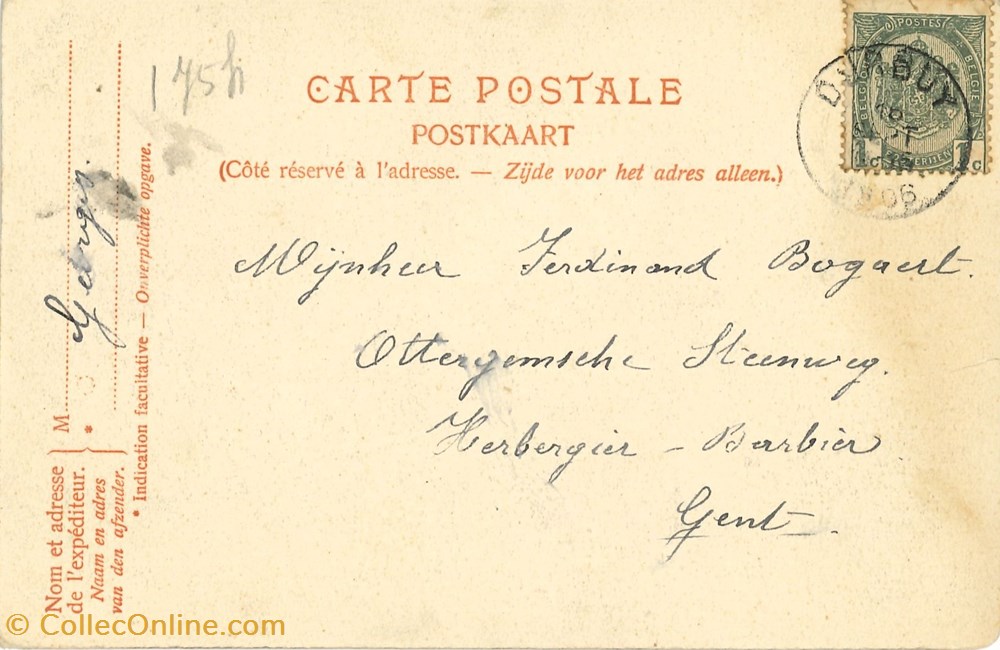 CARTE POSTALE
POSTKAART
(Côté réservé à l'adresse. — Zijde voor het adres alleen.)
Mijnheer Ferdinand Bogaert.
Ottergemsche Steenweg.
Herbergier – Barbier
Gent
175 h
POSTES
BELGIQUE
BELGIË
1 c 1 c
DURBUY
06
M Georges.
*
Nom et adresse
de l'expéditeur.
Naam en adres
van den afzender.
* Indication facultative — Onverplichte opgave.
© CollecOnline.com